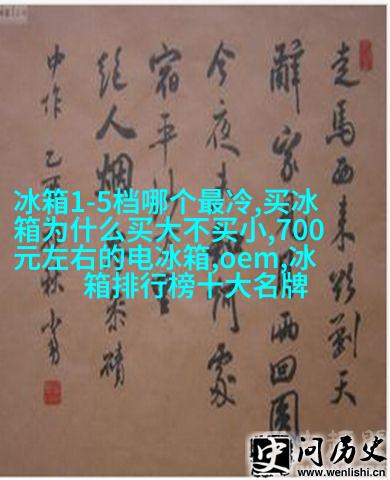 走馬西来欲到天
辭家 兩回圓
今夜 處
宿平
絕人烟 參磧
中作 乙 秋
冰箱1-5档哪个最冷,买冰
箱为什么买大不买小,700
元左右的电冰箱,oem,冰
箱排行榜十大名牌
史问历史
www.wenlishi.cn